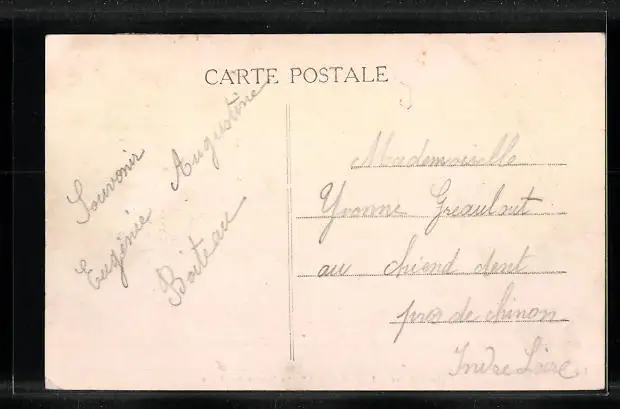 CARTE POSTALE
Souvenir
Eugénie Augustine
Boiteau
Mademoiselle
Yvonne
au chiend dent
pres de chinon
Indre Loire